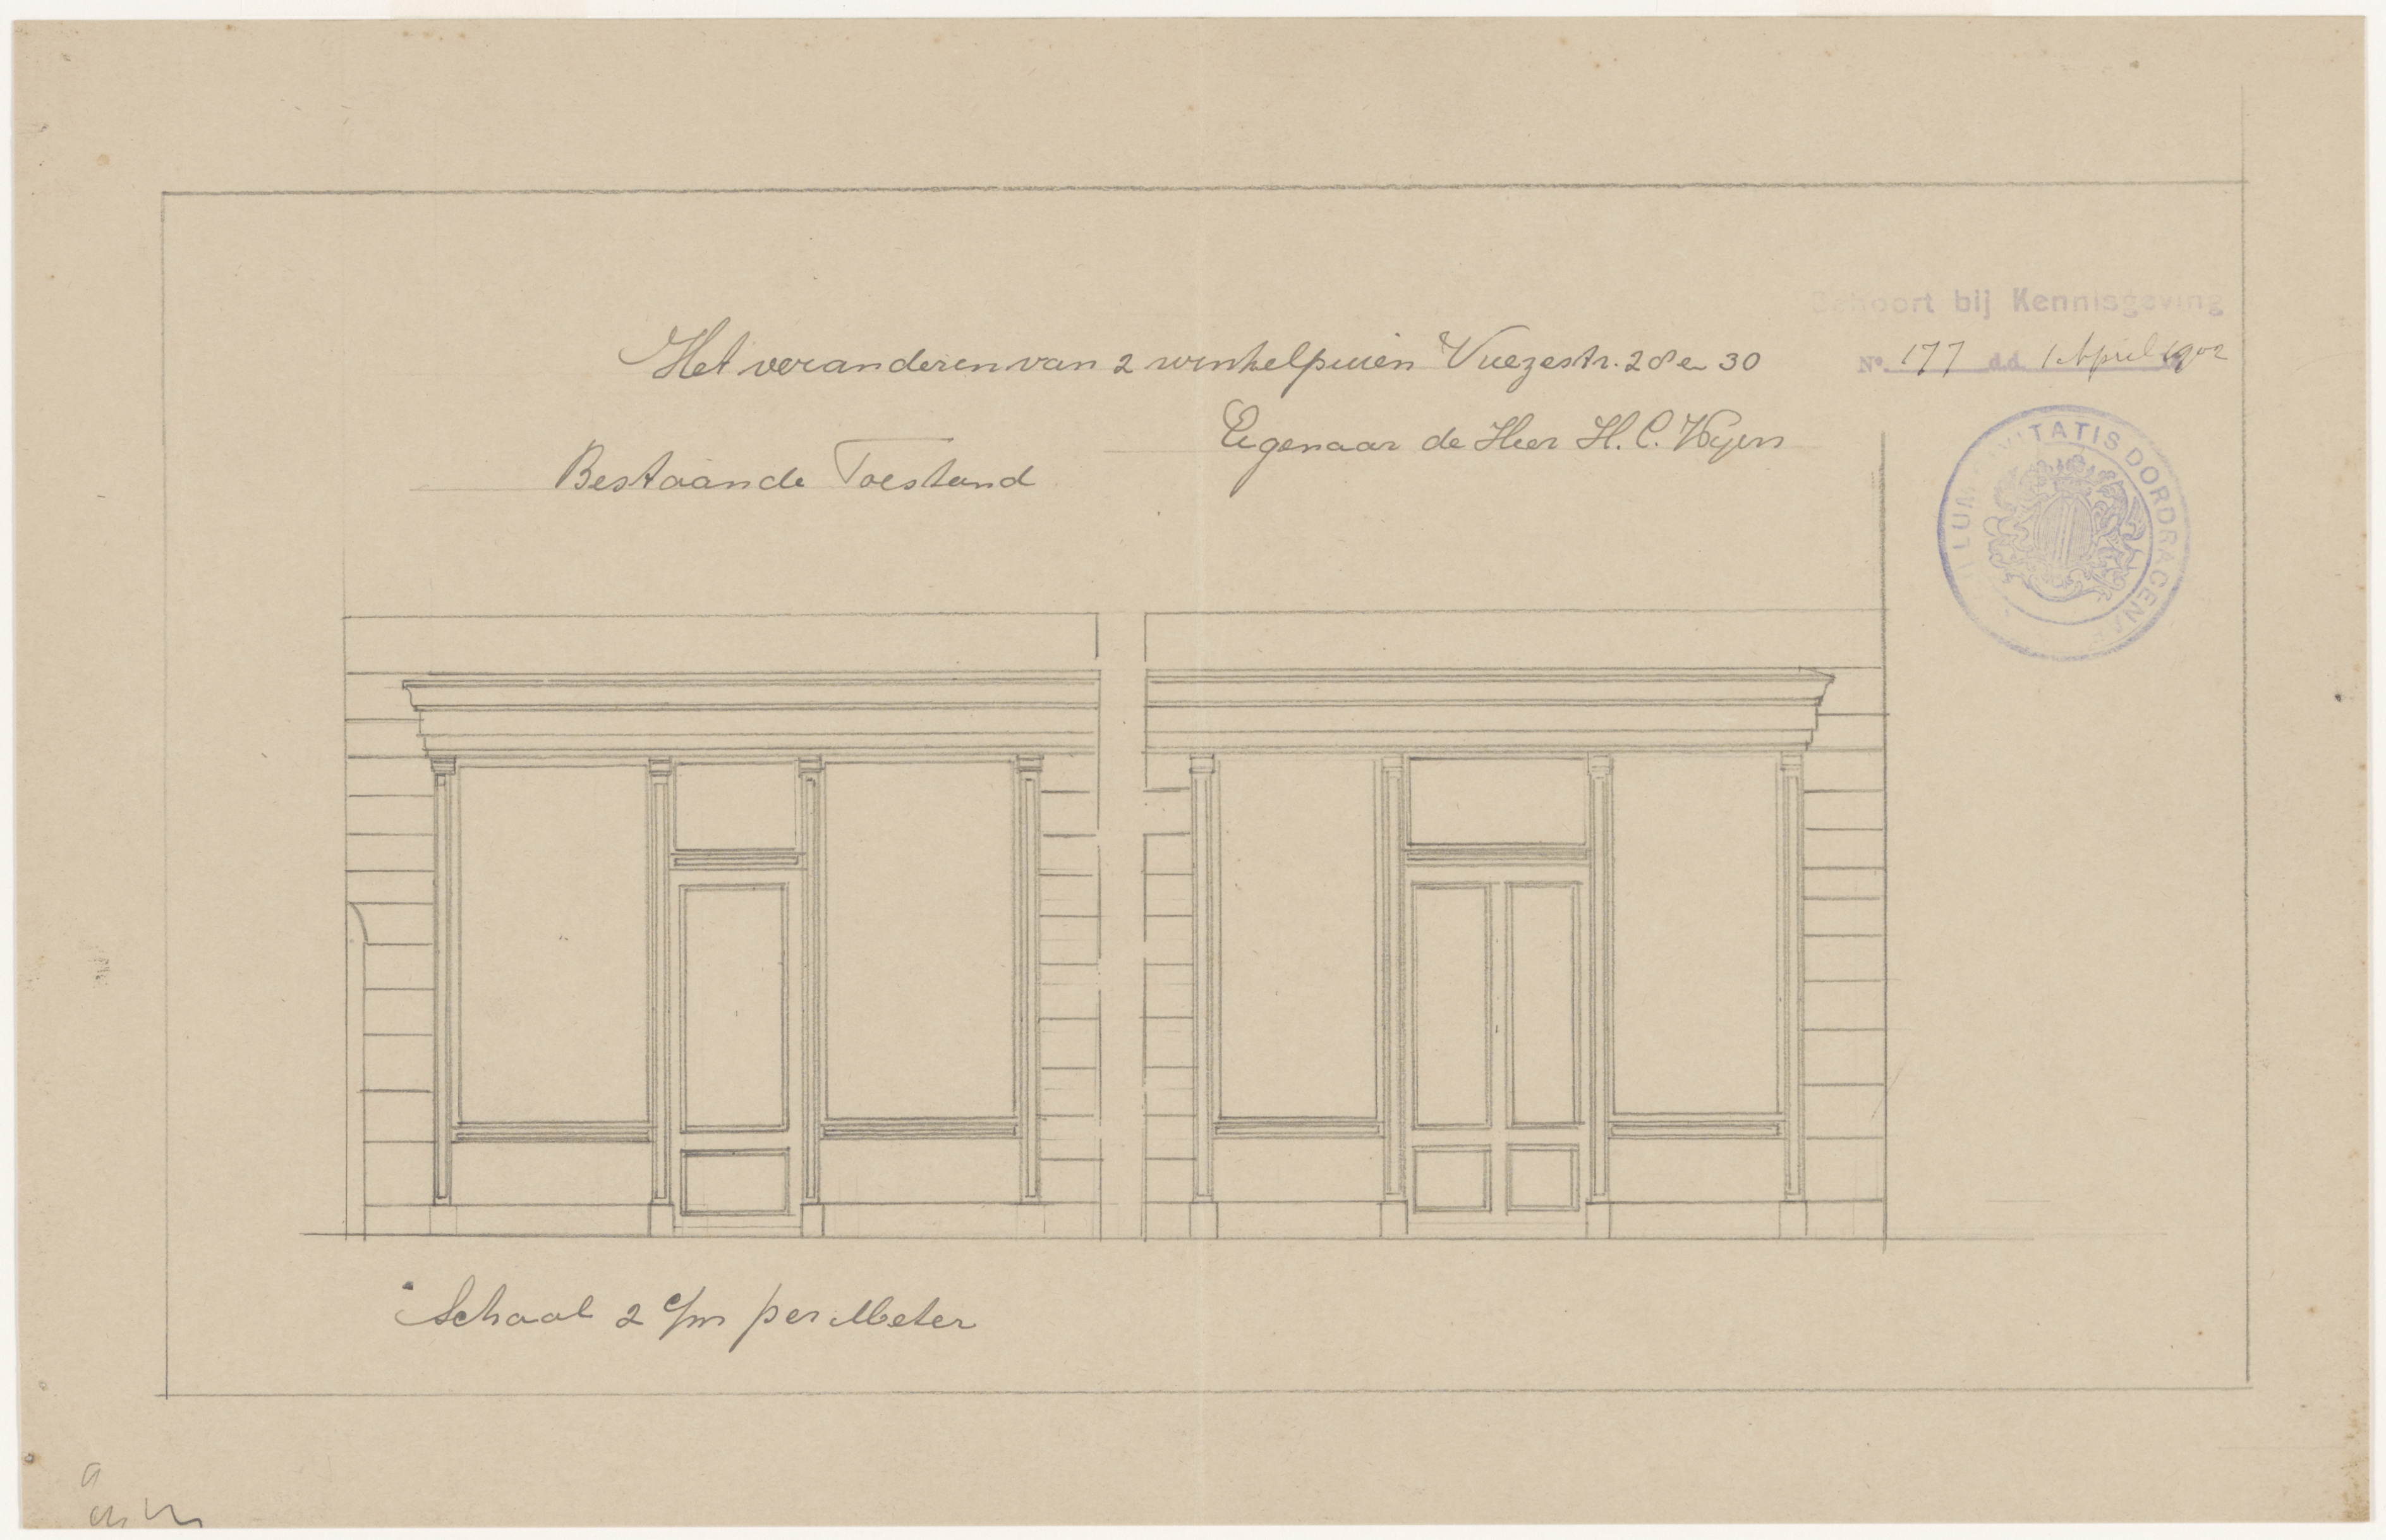 Behoort bij Kennisgeving
Het veranderen van 2 winkelpuien Vriezestr. 28 en 30
No. 177 d.d. 1 April 1902
Eigenaar de Heer H. C.
Bestaande Toestand
TATIS DORDRACEN
Schaal 2 c/m per Meter